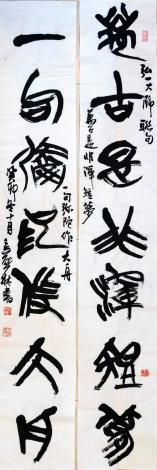 弘一大師聯句
萬古是非渾短夢
萬古是非渾短夢
一句弥陀作大舟
一句彌陀作大舟
癸卯冬十月
林書